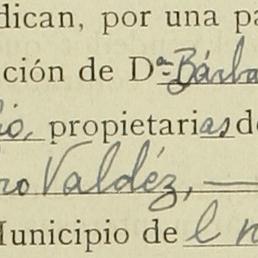 dican, por una pa
ción de Dª Bárba
io, propietarias de
ro Valdéz,
Municipio de l n